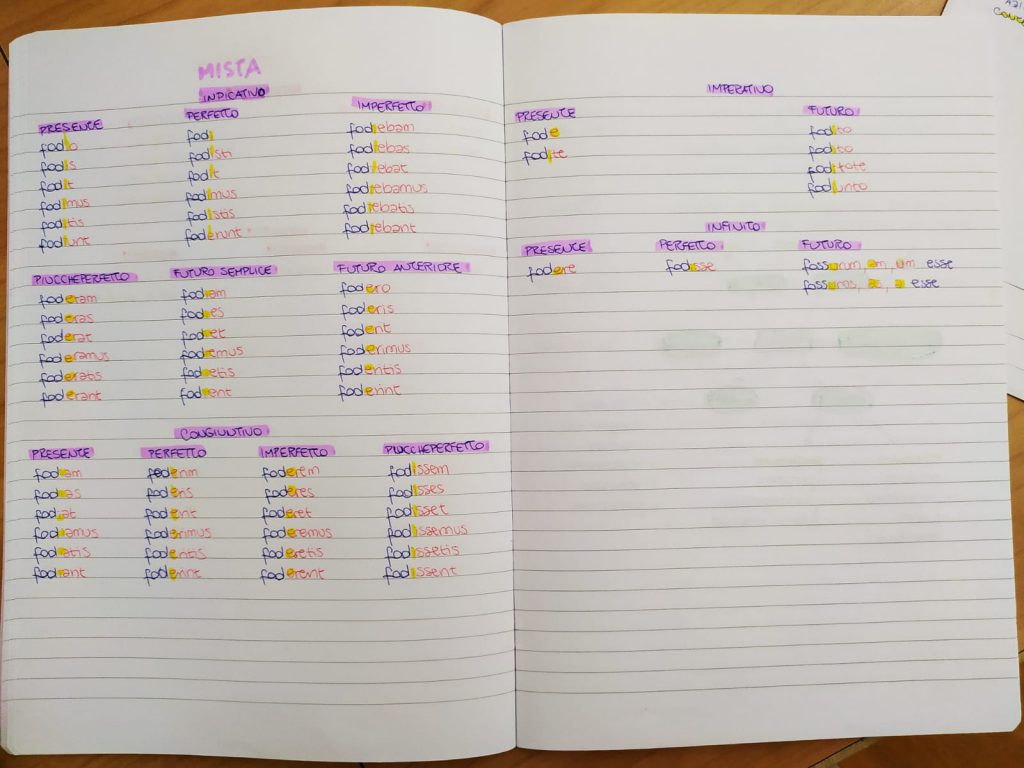 MISTA
INDICATIVO
PRESENTE PERFETTO IMPERFETTO
fodio fodi fodiebam
fodis fodisti fodiebas
fodit fodit fodiebat
fodimus fodimus fodiebamus
foditis fodistis fodiebatis
fodiunt foderunt fodiebant
PIUCCHEPERFETTO FUTURO SEMPLICE FUTURO ANTERIORE
foderam fodiam fodero
foderas fodies foderis
foderat fodiet foderit
foderamus fodiemus foderimus
foderatis fodietis foderitis
foderant fodient foderint
CONGIUNTIVO
PRESENTE PERFETTO IMPERFETTO PIUCCHEPERFETTO
fodiam foderim foderem fodissem
fodias foderis foderes fodisses
fodiat foderit foderet fodisset
fodiamus foderimus foderemus fodissemus
fodiatis foderitis foderetis fodissetis
fodiant foderint foderent fodissent
IMPERATIVO
PRESENTE FUTURO
fode fodito
fodite fodito
foditote
fodiunto
INFINITO
PRESENTE PERFETTO FUTURO
fodere fodisse fossurum, am, um esse
fossuros, as, a esse